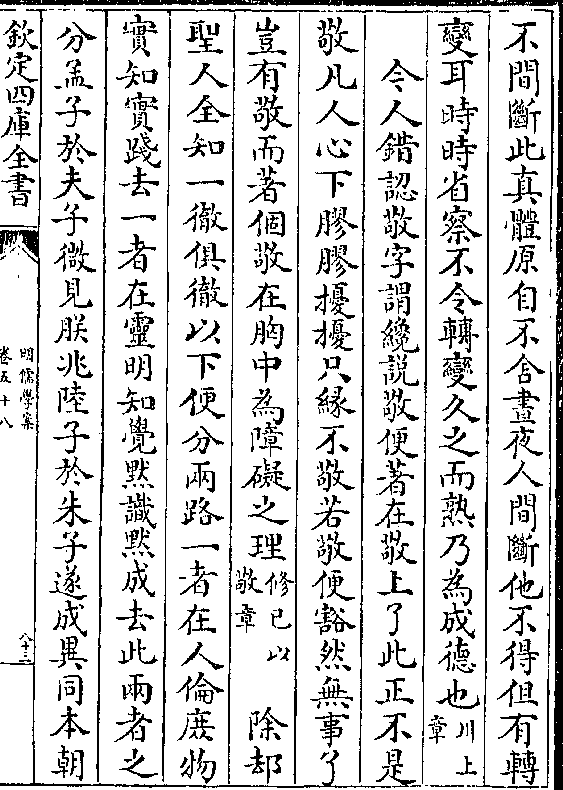 不間斷此真體原自不舍晝夜人間斷他不得但有轉
變耳時時省察不令轉變久之而熟乃為成德也川上章
今人錯認敬字謂纔説敬便著在敬上了此正不是
敬凡人心下膠膠擾擾只緣不敬若敬便豁然無事了
豈有敬而著個敬在胸中為障礙之理修已以敬章 除却
聖人全知一徹俱徹以下便分兩路一者在人倫庶物
實知實踐去一者在靈明知覺默識默成去此兩者之
分孟子於夫子微見朕兆陸子於朱子遂成異同本朝
欽定四庫全書
明儒學案
卷五十八
八十三